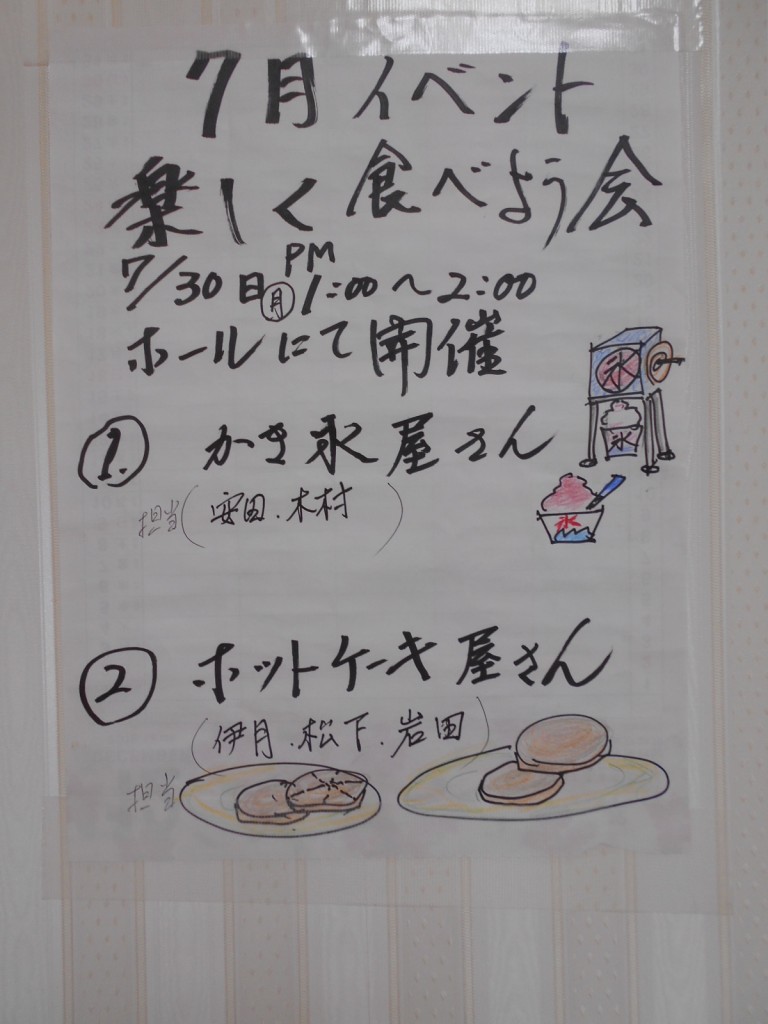 7月イベント
楽しく食べよう会
7/30日(月)PM1:00～2:00
ホールにて開催
氷
氷
① かき氷屋さん
担当(安田.木村)
氷
② ホットケーキ屋さん
(伊月.松下.岩田)
担当